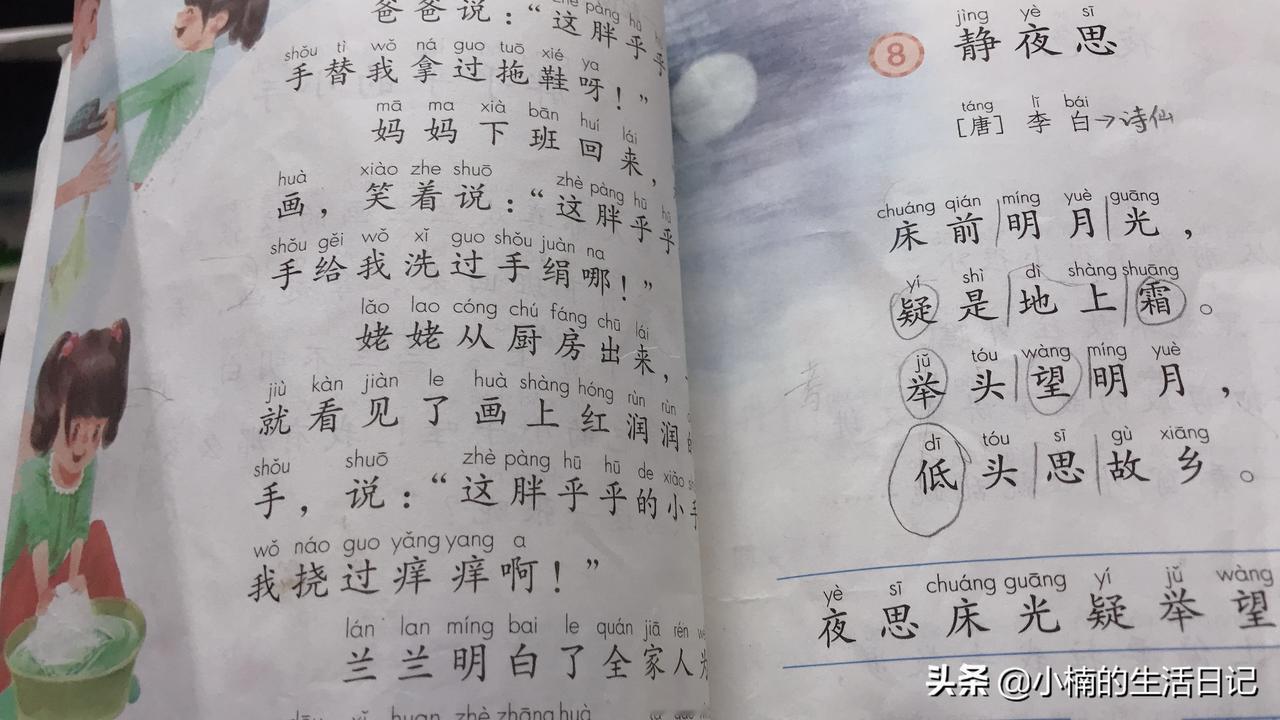 爸爸说：“这胖乎乎
zhè pàng hū
shǒu tì wǒ ná guo tuō xié ya
手替我拿过拖鞋呀！”
mā ma xià bān huí lái
妈妈下班回来，
huà xiào zhe shuō zhè pàng hū hū
画，笑着说：“这胖乎乎
shǒu gěi wǒ xǐ guo shǒu juàn na
手给我洗过手绢哪！”
lǎo lao cóng chú fáng chū lái
姥姥从厨房出来，
jiù kàn jiàn le huà shàng hóng rùn rùn
就看见了画上红润润
shǒu shuō zhè pàng hū hū de xiǎo
手，说：“这胖乎乎的小手
wǒ náo guo yǎng yang a
我挠过痒痒啊！”
lán lan míng bai le quán jiā rén
兰兰明白了全家人为
xǐ huan zhè zhāng huà
jìng yè sī
8 静夜思
táng lǐ bái
[唐] 李白→诗仙
chuáng qián míng yuè guāng
床前明月光，
yí shì dì shàng shuāng
疑是地上霜。
jǔ tóu wàng míng yuè
举头望明月，
dī tóu sī gù xiāng
低头思故乡。
yè sī chuáng guāng yí jǔ wàng
夜思床光疑举望
头条 @小楠的生活日记